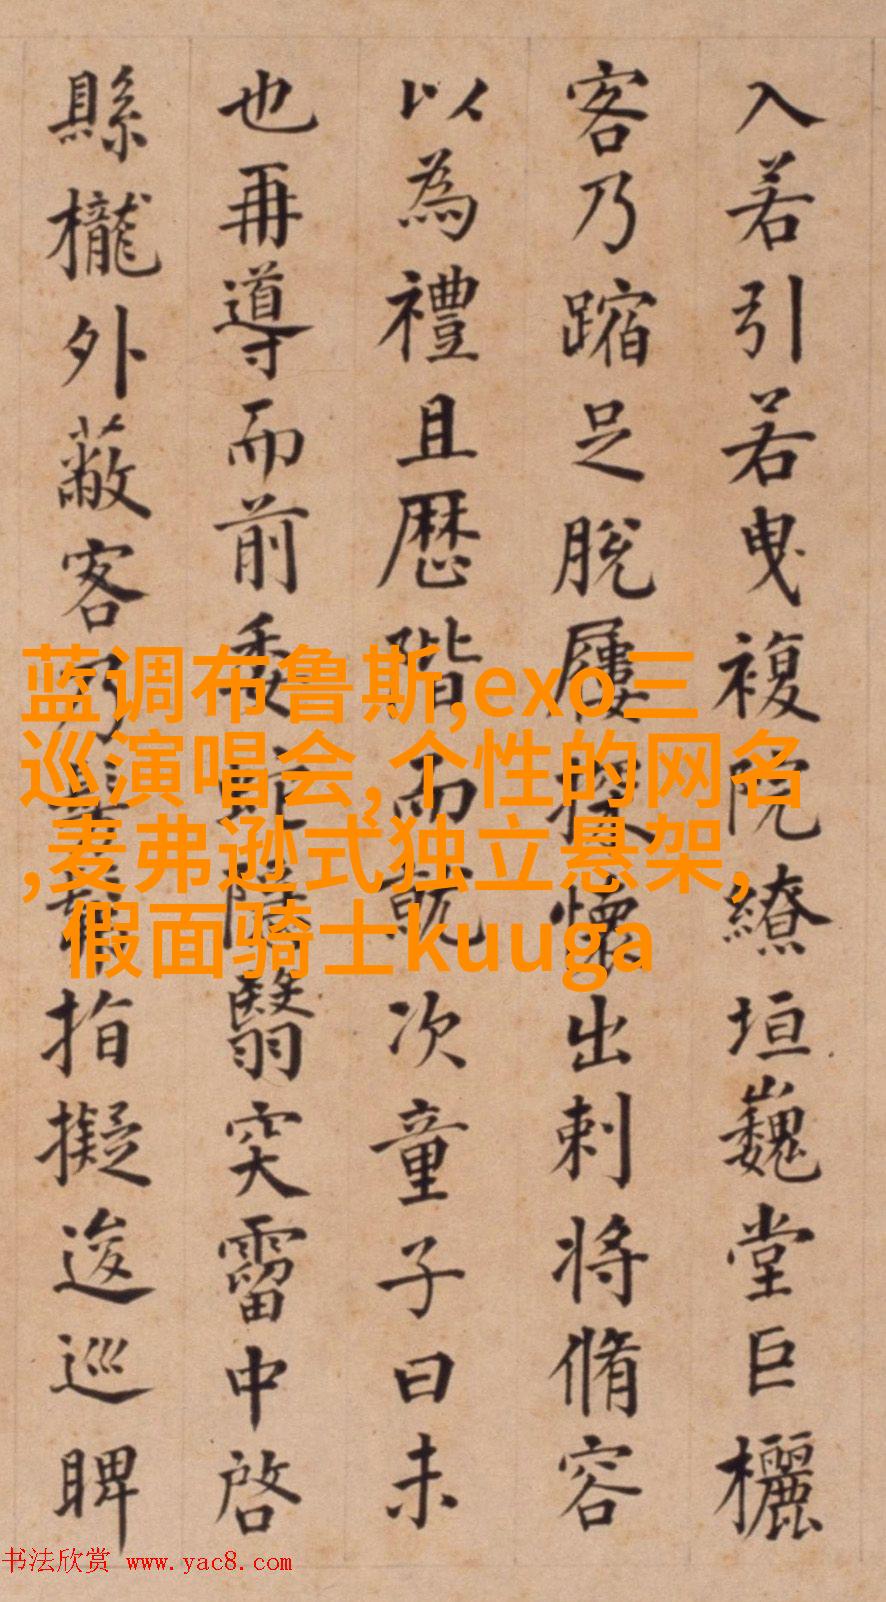 入若引若曳複院繚垣巍堂巨欐
客乃蹜足脫屨探懷出刺将脩容
以為禮且歷階而就次童子曰未
也再導而前委蛇障翳突霤中啓
縣櫳外蔽客乃指擬逡巡睥
蓝调布鲁斯,exo三
巡演唱会,个性的网名
,麦弗逊式独立悬架,
假面骑士kuuga
书法欣赏 www.yac8.com